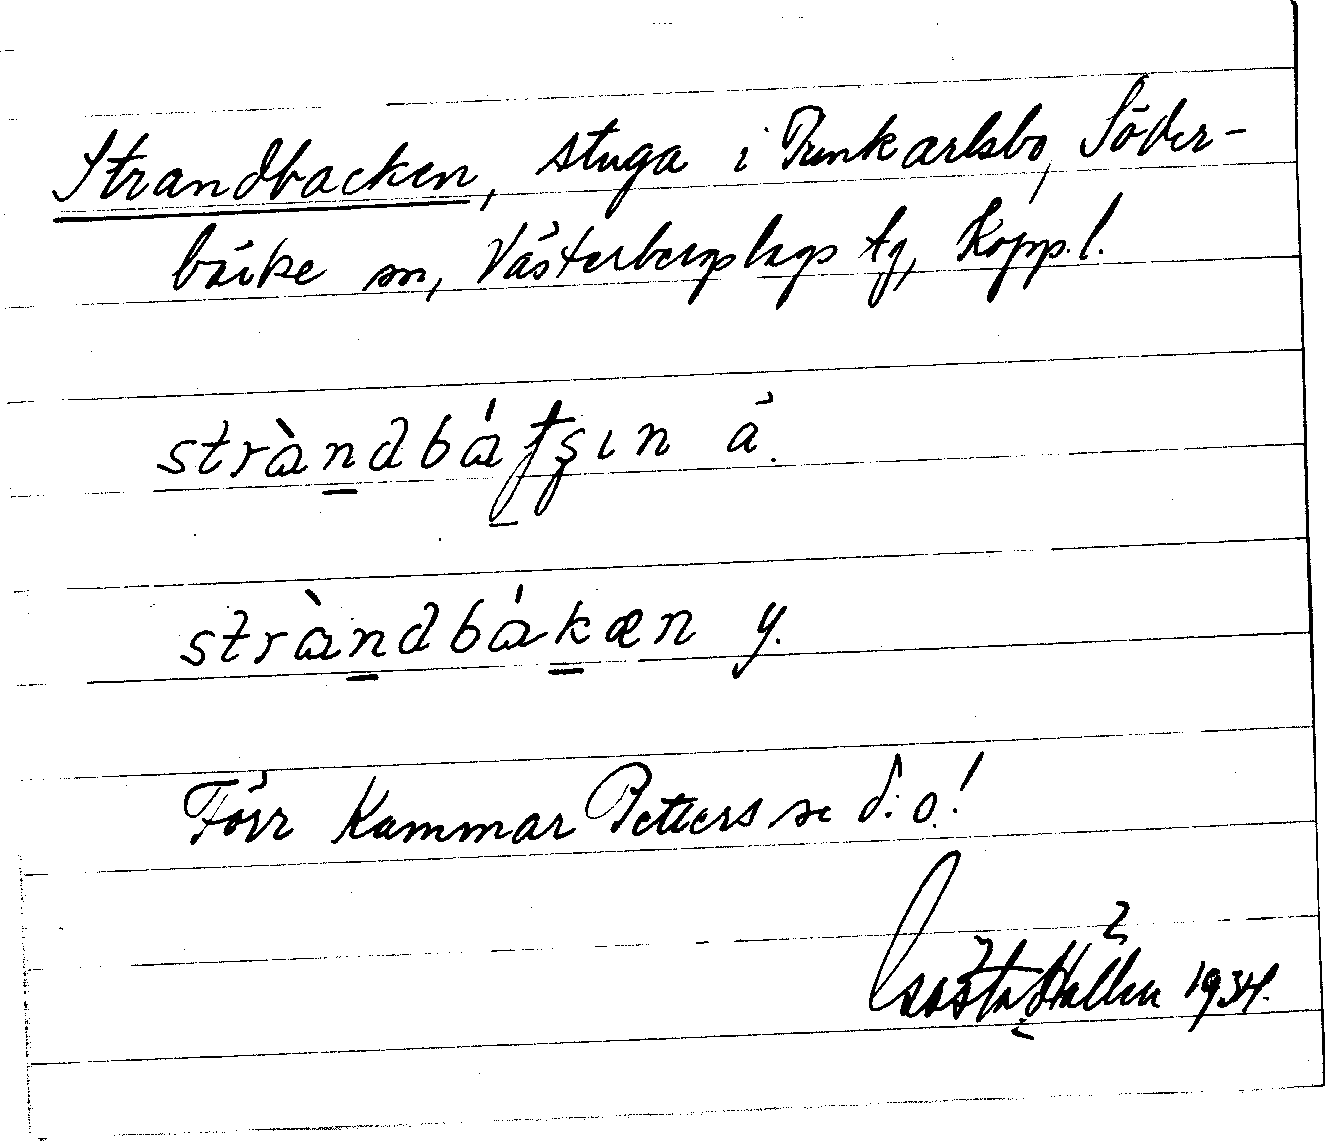 Strandbacken, stuga i Runkarlsbo, Söder-
bärke sn, Västerbergslags tg, Kopp.l.
stràndbátʃşın ä.
stràndbákæn y.
Förr Kammar Petters se d.o!
Gösta Hállen 1934.